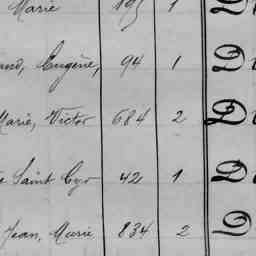 Marie 195 1 D
and, Eugène, 94 1 D
Marie, Victor 684 2 D
Saint Cyr 42 1 D
Jean, Marie 834 2 D